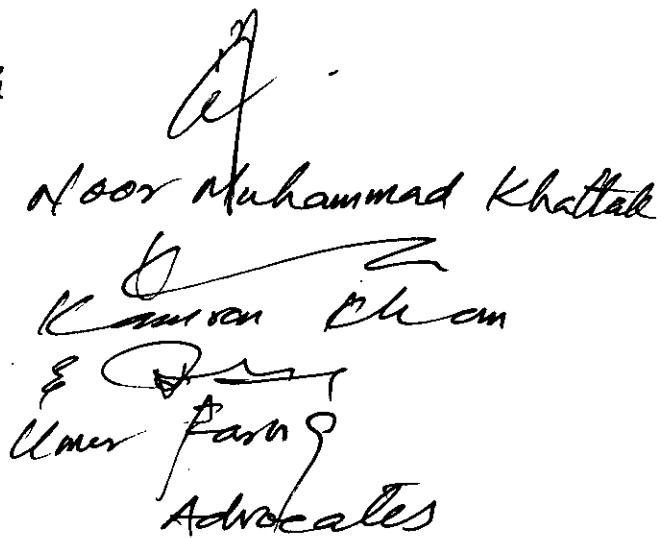 Noor Muhammad Khattak
Kamran Khan
&
Umer Farooq
Advocates